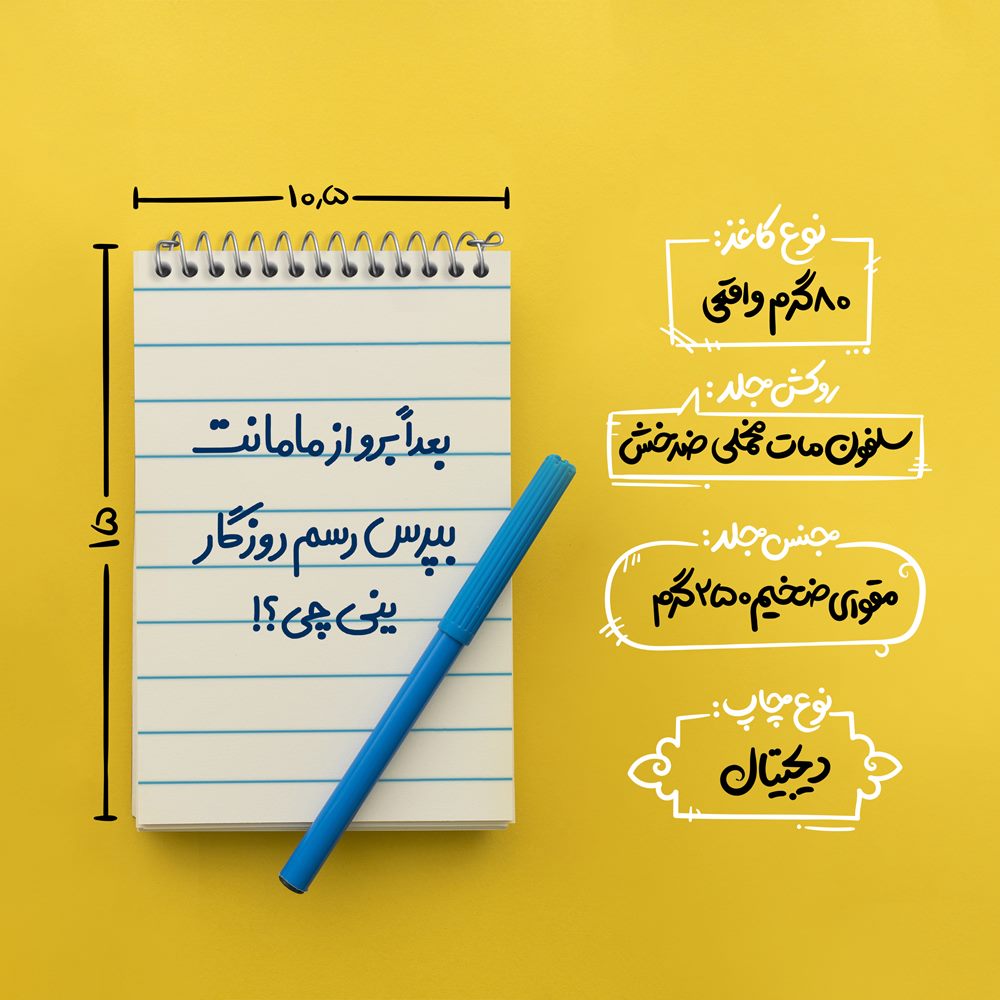 ۱۰٫۵
۱۵
بعداً برو از مامانت
بپرس رسم روزگار
ینی چی؟!
نوع کاغذ:
۸۰ گرم واقعی
روکش جلد:
سلفون مات مخملی ضدخش
جنس جلد:
مقوای ضخیم ۲۵۰ گرم
نوع چاپ:
دیجیتال